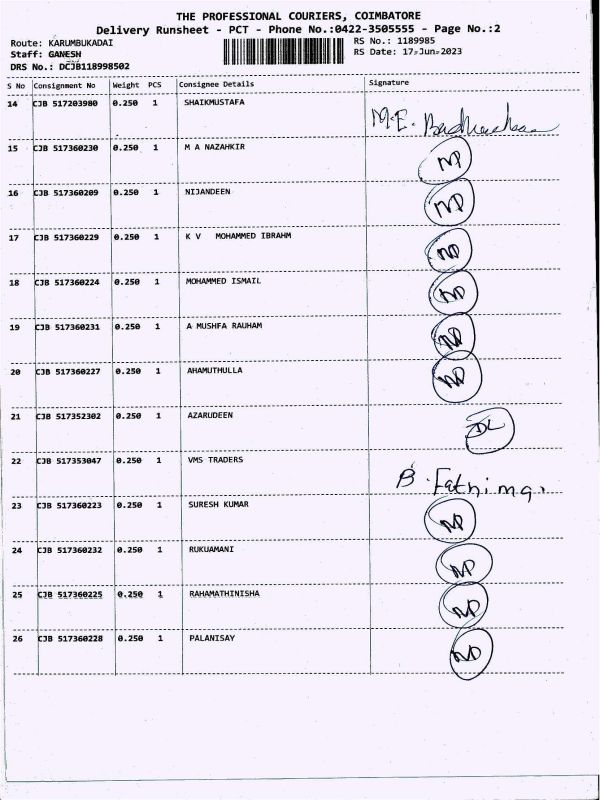 THE PROFESSIONAL COURIERS, COIMBATORE
Delivery Runsheet - PCT - Phone No.:0422-3505555 - Page No.:2
Route: KARUMBUKADAI RS No.: 1189985
Staff: GANESH RS Date: 17-Jun-2023
DRS No.: DCJB118998502
S No Consignment No Weight PCS Consignee Details Signature
14 CJB 517203980 0.250 1 SHAIKMUSTAFA
M.E.
15 CJB 517360230 0.250 1 M A NAZAHKIR ND
16 CJB 517360209 0.250 1 NIJANDEEN ND
17 CJB 517360229 0.250 1 K V MOHAMMED IBRAHM ND
18 CJB 517360224 0.250 1 MOHAMMED ISMAIL ND
19 CJB 517360231 0.250 1 A MUSHFA RAUHAM ND
20 CJB 517360227 0.250 1 AHAMUTHULLA ND
21 CJB 517352302 0.250 1 AZARUDEEN DL
22 CJB 517353047 0.250 1 VMS TRADERS
B. Fathima.
23 CJB 517360223 0.250 1 SURESH KUMAR ND
24 CJB 517360232 0.250 1 RUKUAMANI ND
25 CJB 517360225 0.250 1 RAHAMATHINISHA ND
26 CJB 517360228 0.250 1 PALANISAY ND